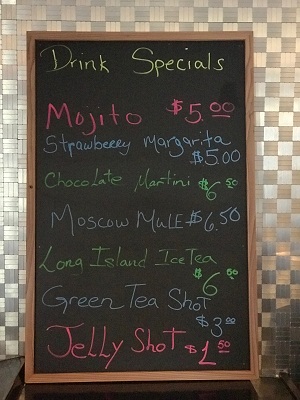 Drink Specials
Mojito $5.00
Strawbeery Margarita
$5.00
Chocolate Martini $6.50
Moscow Mule $6.50
Long Island Ice Tea
$6.50
Green Tea Shot
$3.00
Jelly Shot $1.50